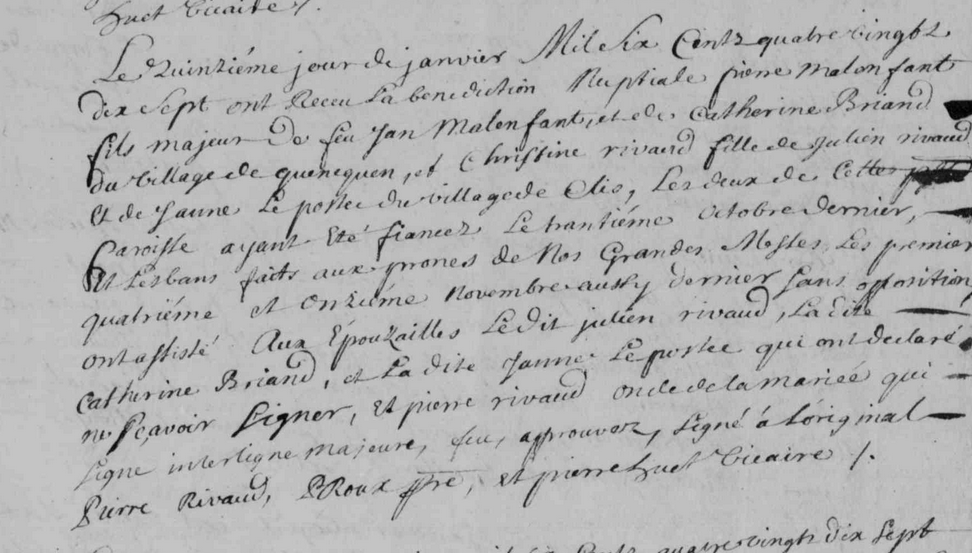 huet vicaire /.
Le quinziéme jour de janvier Mil six Centz quatre vingtz
dix sept ont Receu La benediction Nuptiale pierre malenfant
fils majeur de feu Jan Malenfant, et de Catherine Briand
du village de quenequen, et Christine rivaud fille de Julien rivaud
Et de Janne Le postec du village de Clis, Les deux de Cette
Paroisse ayant Eté fiancez Le trantiéme octobre dernier,
Et Les bans faits aux prones de Nos Grandes Messes Les premier
quatriéme et Onziéme Novembre aussy dernier sans opposition,
ont assisté Aux Epouzailles Le dit julien rivaud, La dite
Catherine Briand, et La dite Janne Le postec qui ont declaré
ne Sçavoir Signer, Et pierre rivaud oncle de la mariée qui
Signe interligne majeure, feu, approuvez, Signé á L'original
Pierre Rivaud, P Roux ppre, et pierre huet vicaire /.
quatre vingts dix sept